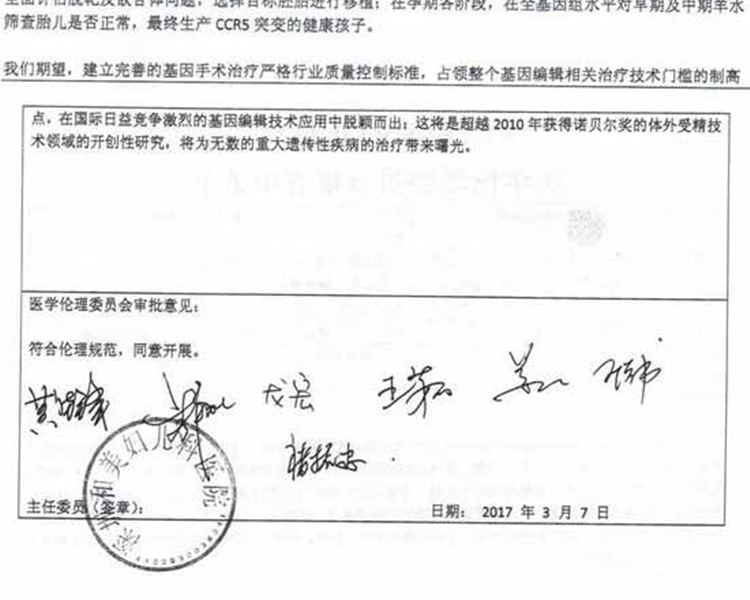 全面评估脱靶及嵌合体问题，选择目标胚胎进行移植；在孕期各阶段，在全基因组水平对早期及中期羊水
筛查胎儿是否正常，最终生产 CCR5 突变的健康孩子。
我们期望，建立完善的基因手术治疗严格行业质量控制标准，占领整个基因编辑相关治疗技术门槛的制高
点，在国际日益竞争激烈的基因编辑技术应用中脱颖而出；这将是超越 2010 年获得诺贝尔奖的体外受精技
术领域的开创性研究，将为无数的重大遗传性疾病的治疗带来曙光。
医学伦理委员会审批意见：
符合伦理规范，同意开展。
深圳和美妇儿科医院
主任委员（签章）：
日期： 2017 年 3 月 7 日